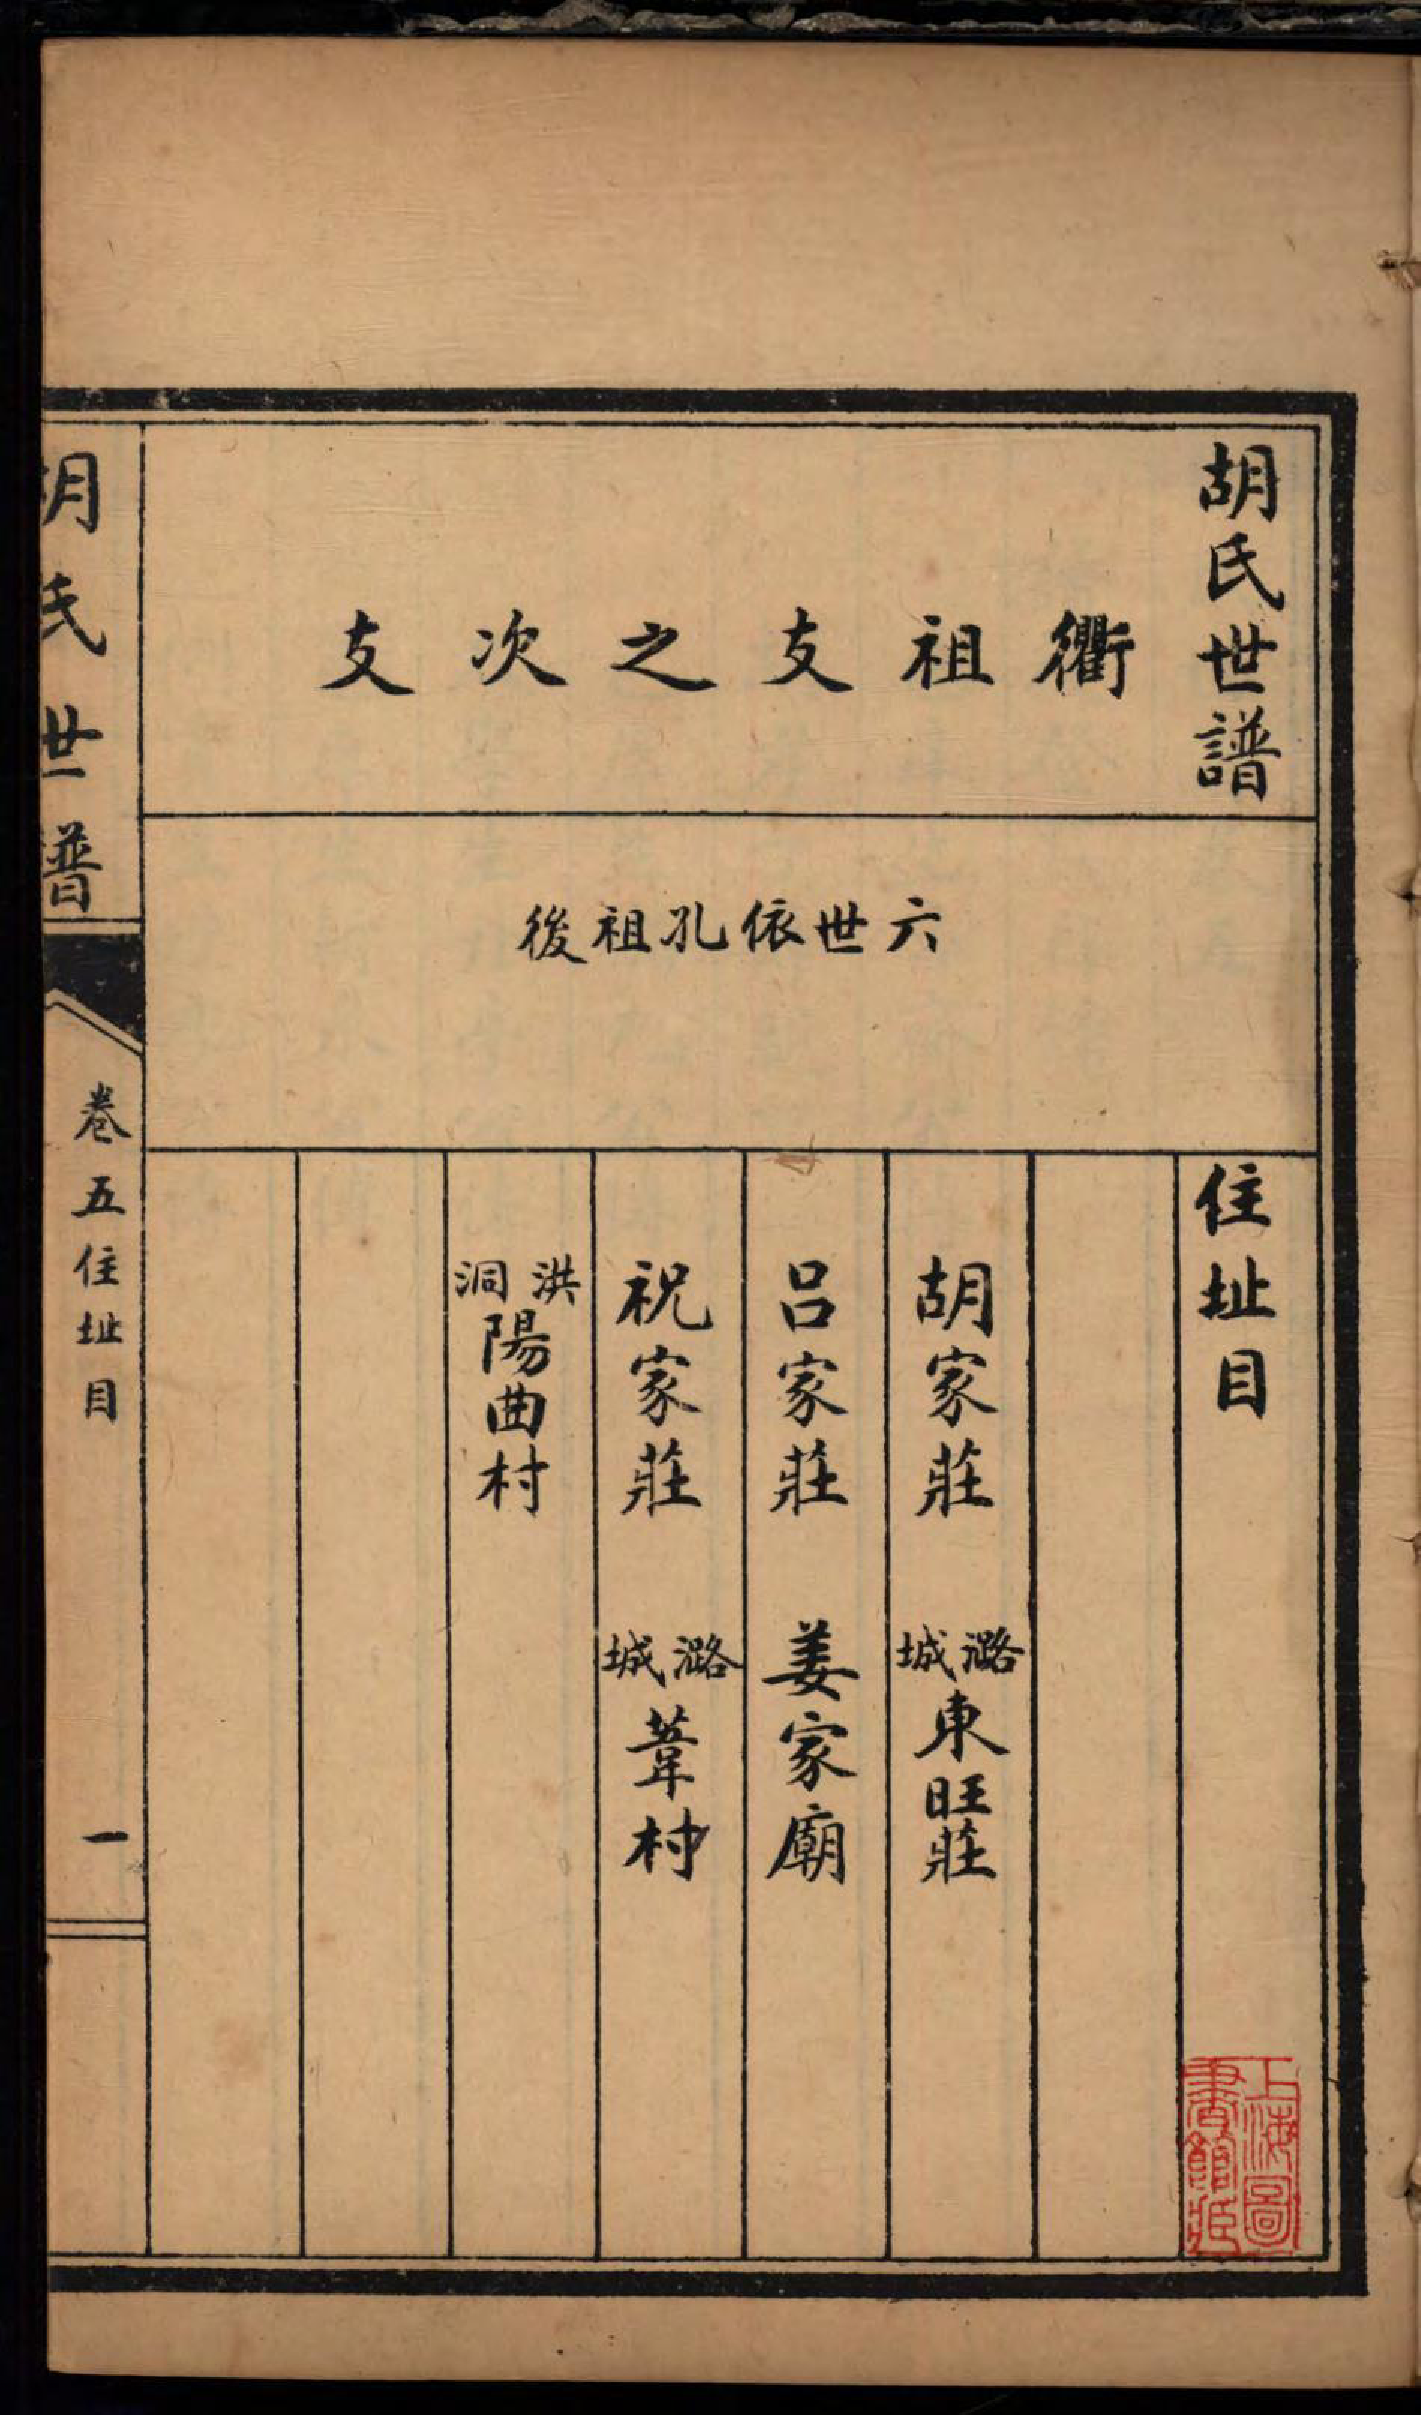 胡氏世譜
衢祖支之次支
六世依孔祖後
住址目
胡家莊 潞城東旺莊
呂家莊 姜家廟
祝家莊 潞城葦村
洪洞陽曲村
胡氏世譜
卷五住址目
一
上海圖書館藏